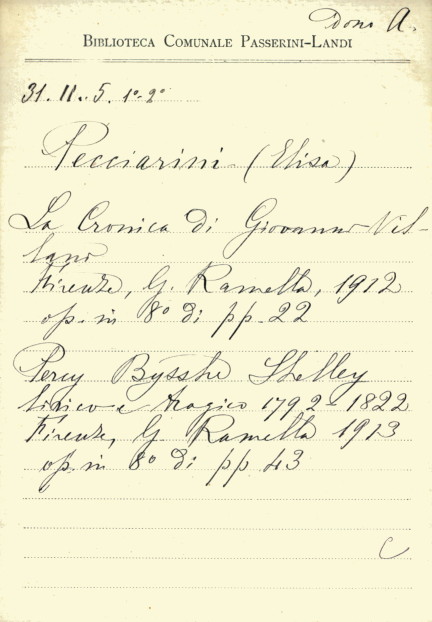 Dono A.
BIBLIOTECA COMUNALE PASSERINI-LANDI
31. II. 5. 1º-2º
Pecciarini (Elisa)
La Cronica di Giovanni Vil-
lani
Firenze, G. Ramella, 1912
op. in 8º di pp. 22
Percy Bysshe Shelley
lirico e tragico 1792-1822
Firenze, G. Ramella 1913
op. in 8º di pp 43
C